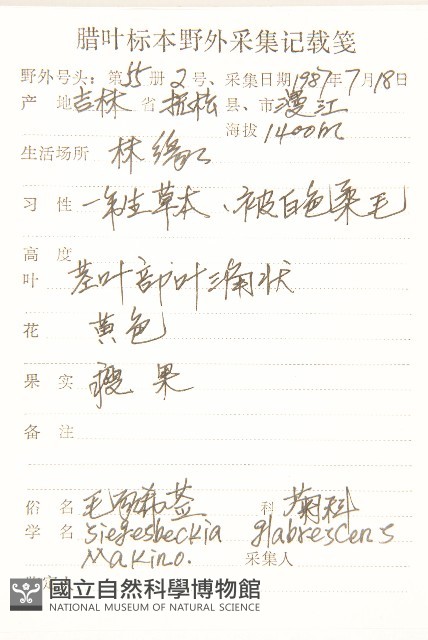 腊叶标本野外采集记载笺
野外号头：第55册2号、采集日期1987年7月18日
产 地 吉林 省 抚松 县、市 漫江
海拔 1400m
生活场所 林缘
习 性 一年生草本、被白色柔毛
高 度
叶 基叶部叶三角状
花 黄色
果 实 瘦果
备 注
俗 名 毛豨莶 科 菊科
学 名 Siegesbeckia glabrescens
Makino. 采集人
國立自然科學博物館
NATIONAL MUSEUM OF NATURAL SCIENCE